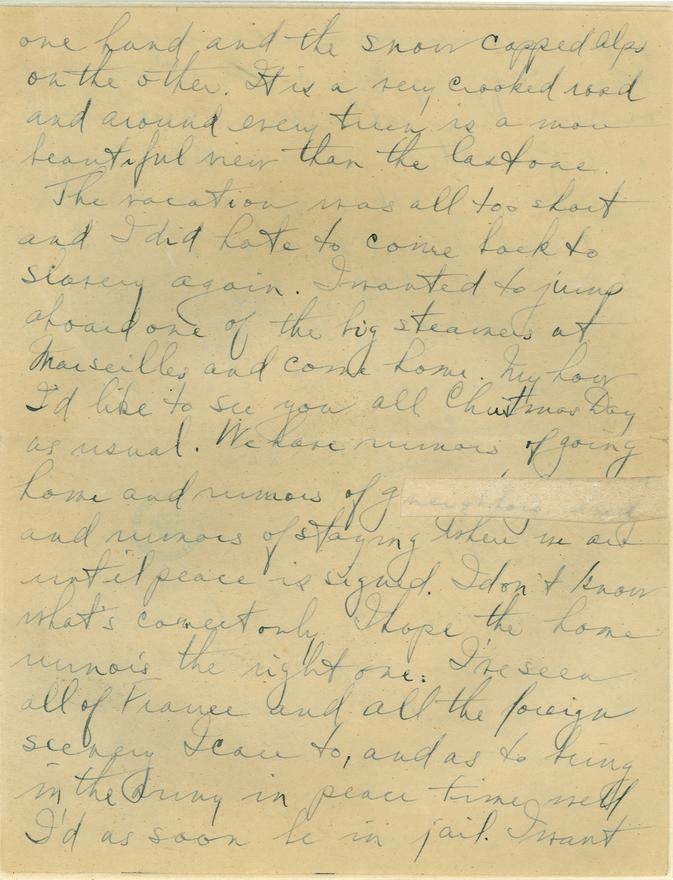 one hand and the snow capped Alps
on the other. It is a very crooked road
and around every turn is a more
beautiful view than the last one.
The vacation was all too short
and I did hate to come back to
slavery again. I wanted to jump
aboard one of the big steamers at
Marseilles and come home. My how
I'd like to see you all Christmas Day
as usual. We have rumors of going
home and rumors of g
and rumors of staying where we are
until peace is signed. I don't know
what's correct only I hope the home
rumor is the right one. I've seen
all of France and all the foreign
scenery I care to, and as to being
in the Army in peace time well
I'd as soon be in jail. I want